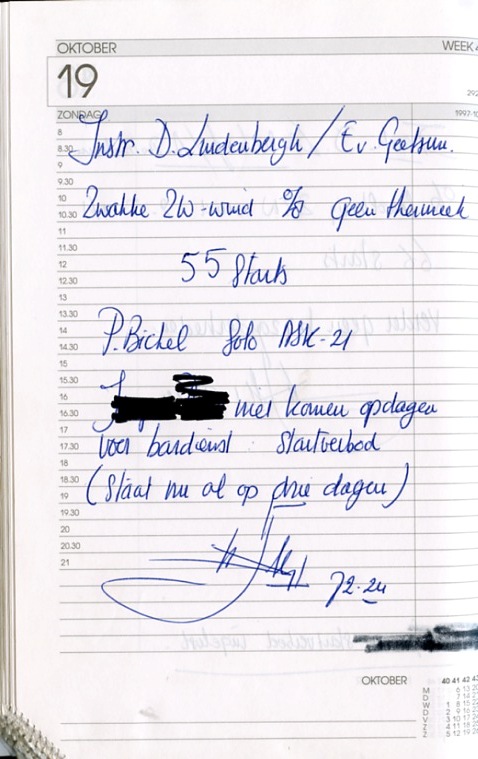 OKTOBER WEEK
19
292
ZONDAG 1997-10
8
Instr. D. Lindenbergh / E v. Geetsum.
8.30
9
9.30
10 Zwakke ZW-wind % geen thermiek
10.30
11
11.30
12 55 Starts
12.30
13
13.30
14 P. Bichel Solo ASK-21
14.30
15
15.30
16 niet komen opdagen
16.30
17 voor bardienst : Startverbod
17.30
18
18.30 (Staat nu al op drie dagen)
19
19.30
20
20.30
21
72-24
OKTOBER 40 41 42
M 6 13
D 7 14
W 1 8 15
D 2 9 16
V 3 10 17
Z 4 11 18
Z 5 12 19